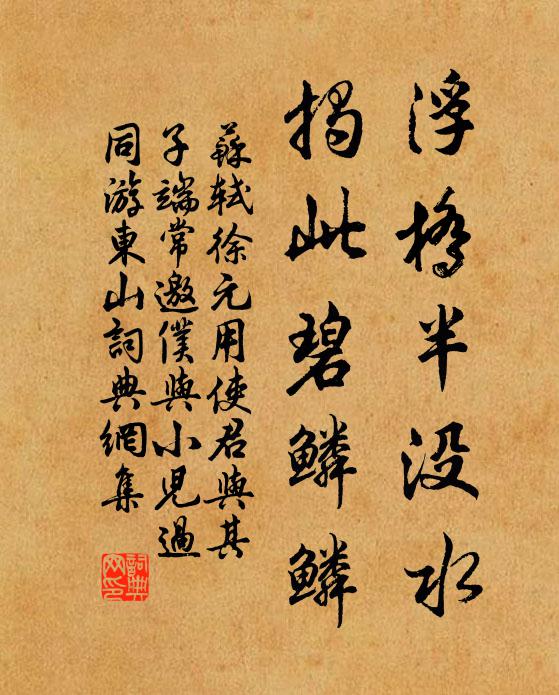 浮橋半没水
揭此碧鱗鱗
蘇軾徐元用使君與其
子端常邀僕與小兒過
同游東山詞典網集
詞典
网印